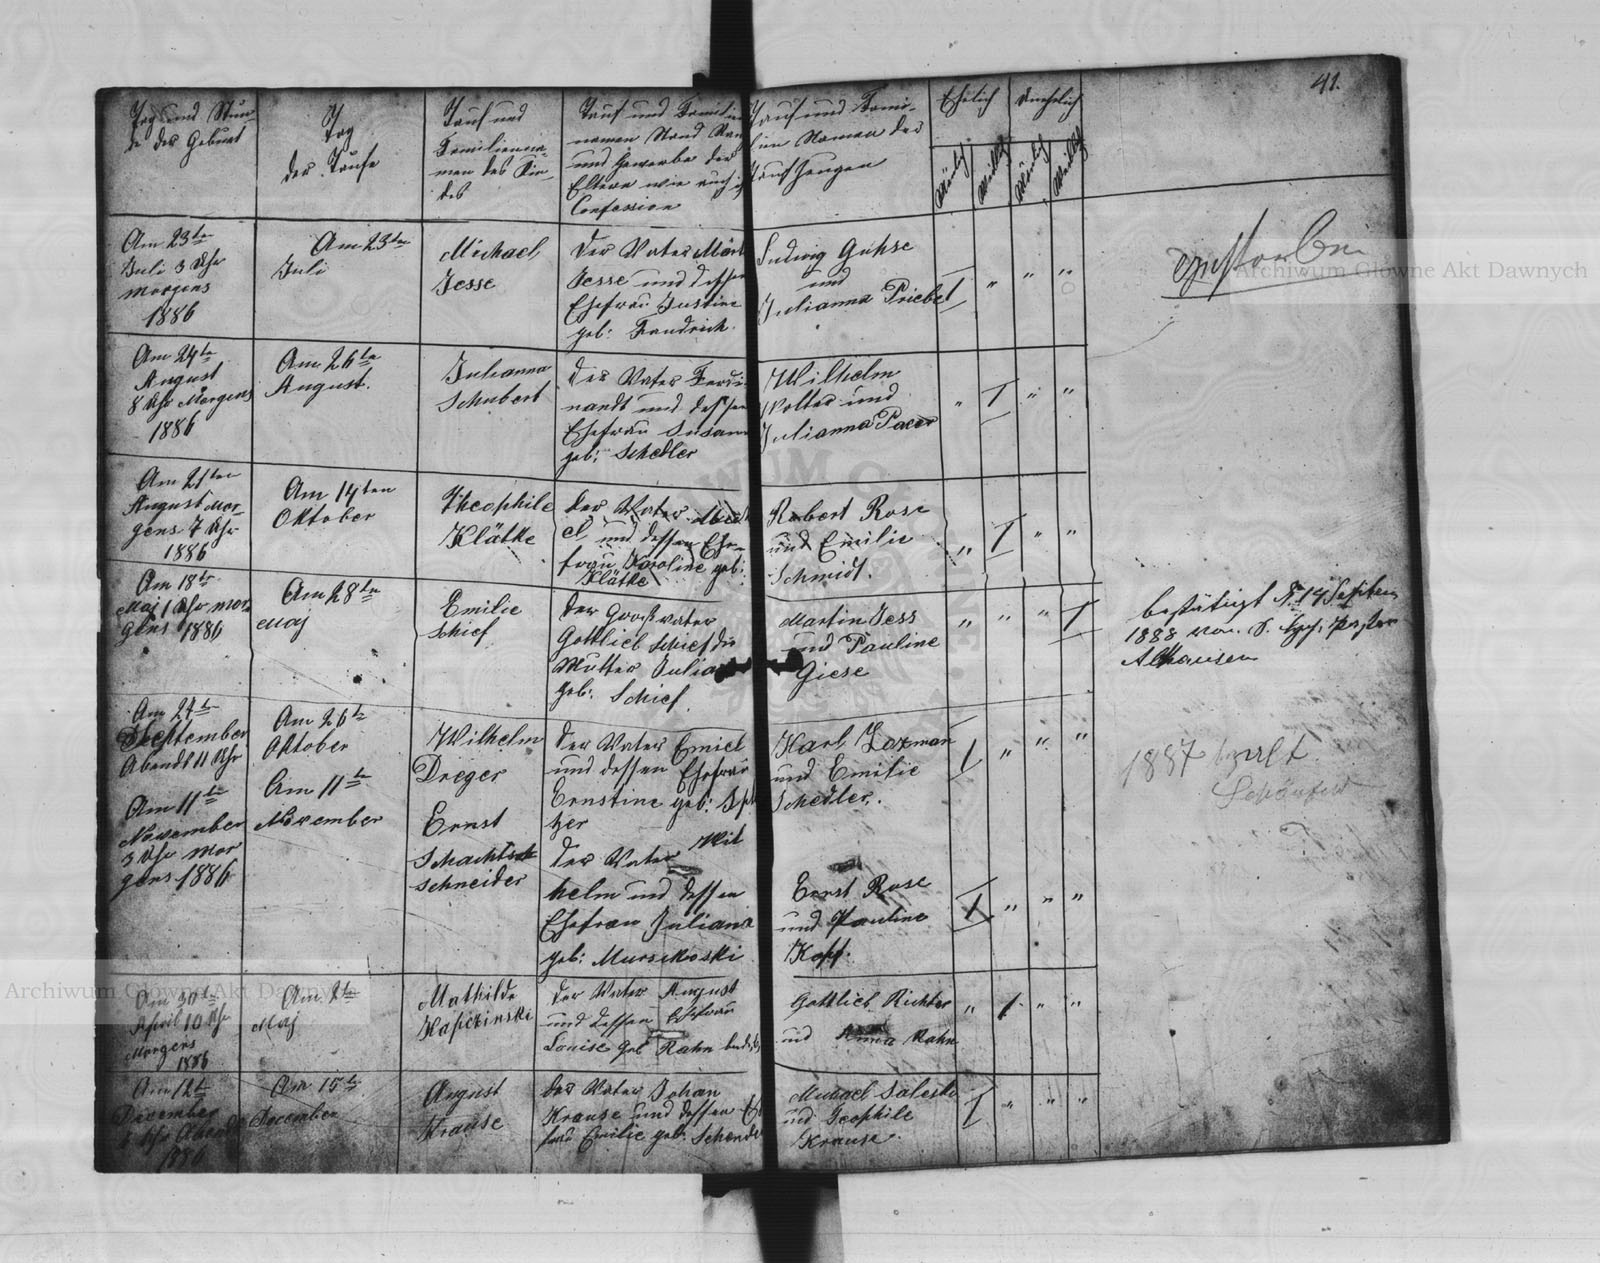 41.
Tag und Stun-
de der Geburt
Tag
der Taufe
Tauf und
Familienna-
men des Kin-
des
Tauf und Familien
namen Stand
und Gewerbe der
Eltern wie auch
Confession
Tauf und Fami-
lien Namen der
Taufzeugen
Ehelich
Unehelich
Männlich
Weiblich
Männlich
Weiblich
Am 23ten
Juli 3 Uhr
morgens
1886
Am 23ten
Juli
Michael
Jesse
der Vater
Jesse und dessen
Ehefrau Justine
geb: Fandrich.
Ludwig Guhse
und
Julianna Priebe
I " " "
verstorben
Am 24te
August
8 Uhr Morgens
1886
Am 26te
August.
Julianna
Schubert
der Vater Ferdi-
nandt und dessen
Ehefrau Susann
geb: Schedler
Wilhelm
Wolter und
Julianna Pacer
" I " "
Am 21ten
August mor-
gens 7 Uhr
1886
Am 14ten
Oktober
Theophile
Klätke
der Vater
und dessen Ehe-
frau Karoline geb:
Klätke
Robert Rose
und Emilie
Schmidt.
" I " "
Am 18te
Maj 1 Uhr mor
gens 1886
Am 28te
Maj
Emilie
Schief
der Großvater
Gottlieb Schief die
Mutter Julia
geb: Schief.
Martin Jess
und Pauline
Giese
" " " I
bestätigt 14 Septem
1888 von
Althausen
Am 27te
September
Abendt 11 Uhr
Am 26te
Oktober
Wilhelm
Dreger
der Vater Emiel
und dessen Ehefrau
Ernstine geb:
Karl Lazman
und Emilie
Schedler.
I " " "
1887
Am 11te
November
3 Uhr mor
gens 1886
Am 11te
November
Ernst
Schachtsch
schneider
der Vater Wil
helm und dessen
Ehefrau Juliana
geb: Mursikoski
Ernst Rose
und Pauline
Kopp.
I " " "
Am 30te
April 10 Uhr
Morgens
1886
Am 2te
Maj
Mathilde
der Vater August
und dessen Ehefrau
Louise geb Rahn
Gottlieb Richter
und Anna Rahn
" I " "
Am 12te
December
Uhr Abend
1886
Am 15te
December
August
Krause
der Vater Johan
Krause und dessen
frau Emilie geb:
Michael
und Teophile
Krause.
I " " "
Archiwum Główne Akt Dawnych
Archiwum Główne Akt Dawnych